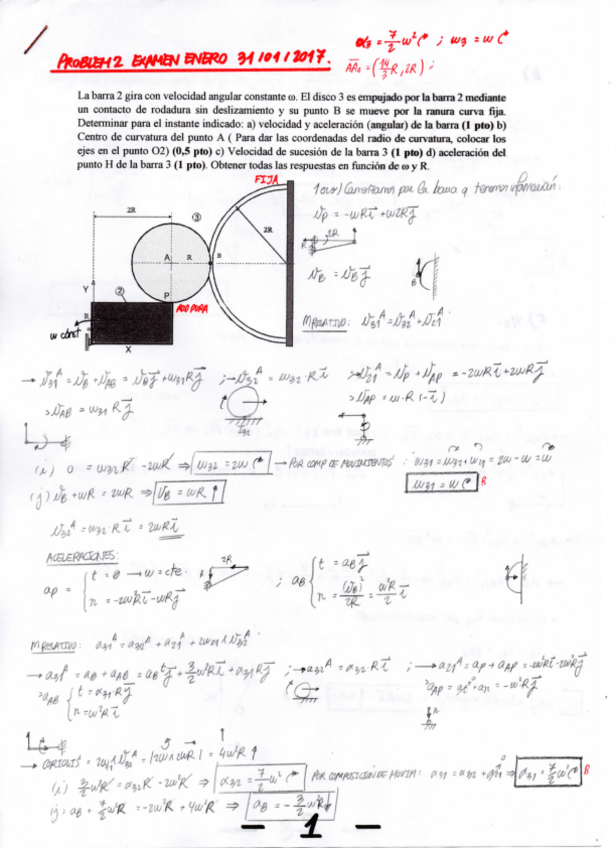 PROBLEM 2 EXAMEN ENERO 31/01/2017.
α₃ = 7/2 ω² ; ω₃ = ω
AA₀ = (14/3 R, 2R) ;
La barra 2 gira con velocidad angular constante ω. El disco 3 es empujado por la barra 2 mediante
un contacto de rodadura sin deslizamiento y su punto B se mueve por la ranura curva fija.
Determinar para el instante indicado: a) velocidad y aceleración (angular) de la barra (1 pto) b)
Centro de curvatura del punto A ( Para dar las coordenadas del radio de curvatura, colocar los
ejes en el punto O2) (0,5 pto) c) Velocidad de sucesión de la barra 3 (1 pto) d) aceleración del
punto H de la barra 3 (1 pto). Obtener todas las respuestas en función de ω y R.
FIJA
2R
③
2R
A
R
B
Y
②
P
RODADURA
R
ω const
X
vP = -ωR i + ω2R j
R
2R
vB = vB j
B
M RELATIVO: v31^A = v32^A + v21^A
→ v31^A = vB + vAB = vB j + ω31 R j ; → v32^A = ω32 · R i ; → v21^A = vP + vAP = -2ωR i + 2ωR j
> vAB = ω31 R j
> vAP = ω·R (-i)
(i) 0 = ω32 R - 2ωR ⇒ ω32 = 2ω → POR COMP DE MOVIMIENTOS : ω31 = ω32 + ω21 = 2ω - ω = ω
(j) vB + ωR = 2ωR ⇒ vB = ωR ↑
ω31 = ω
B
v32^A = ω32 · R i = 2ωR i
ACELERACIONES:
aP = t = 0 → ω = cte
n = -2ω²R i - ωR j
2R
R
; aB t = aB j
n = (vB)²/2R = ω²R/2 i
M RELATIVO: a31^A = a32^A + a21^A + 2ω21 ∧ v32^A
→ a31^A = aB + aAB = aB^t j + 3/2 ω²R i + α31 R j ; → a32^A = α32 · R i ; → a21^A = aP + aAP = -2ω²R i - 2ω²R j
> aAB t = α31 · R j
n = ω²R i
→ CORIOLIS = 2ω21 ∧ v32^A = |2ω ∧ 2ωR| = 4ω²R ↑
(i) 3/2 ω²R = α32 R - 2ω²R ⇒ α32 = 7/2 ω² POR COMPOSICIÓN DE MOVIM: α31 = α32 + α21 ⇒ α31 = 7/2 ω²
B
(j) aB + 7/2 ω²R = -2ω²R + 4ω²R ⇒ aB = -3/2 ω²R
- 1 -